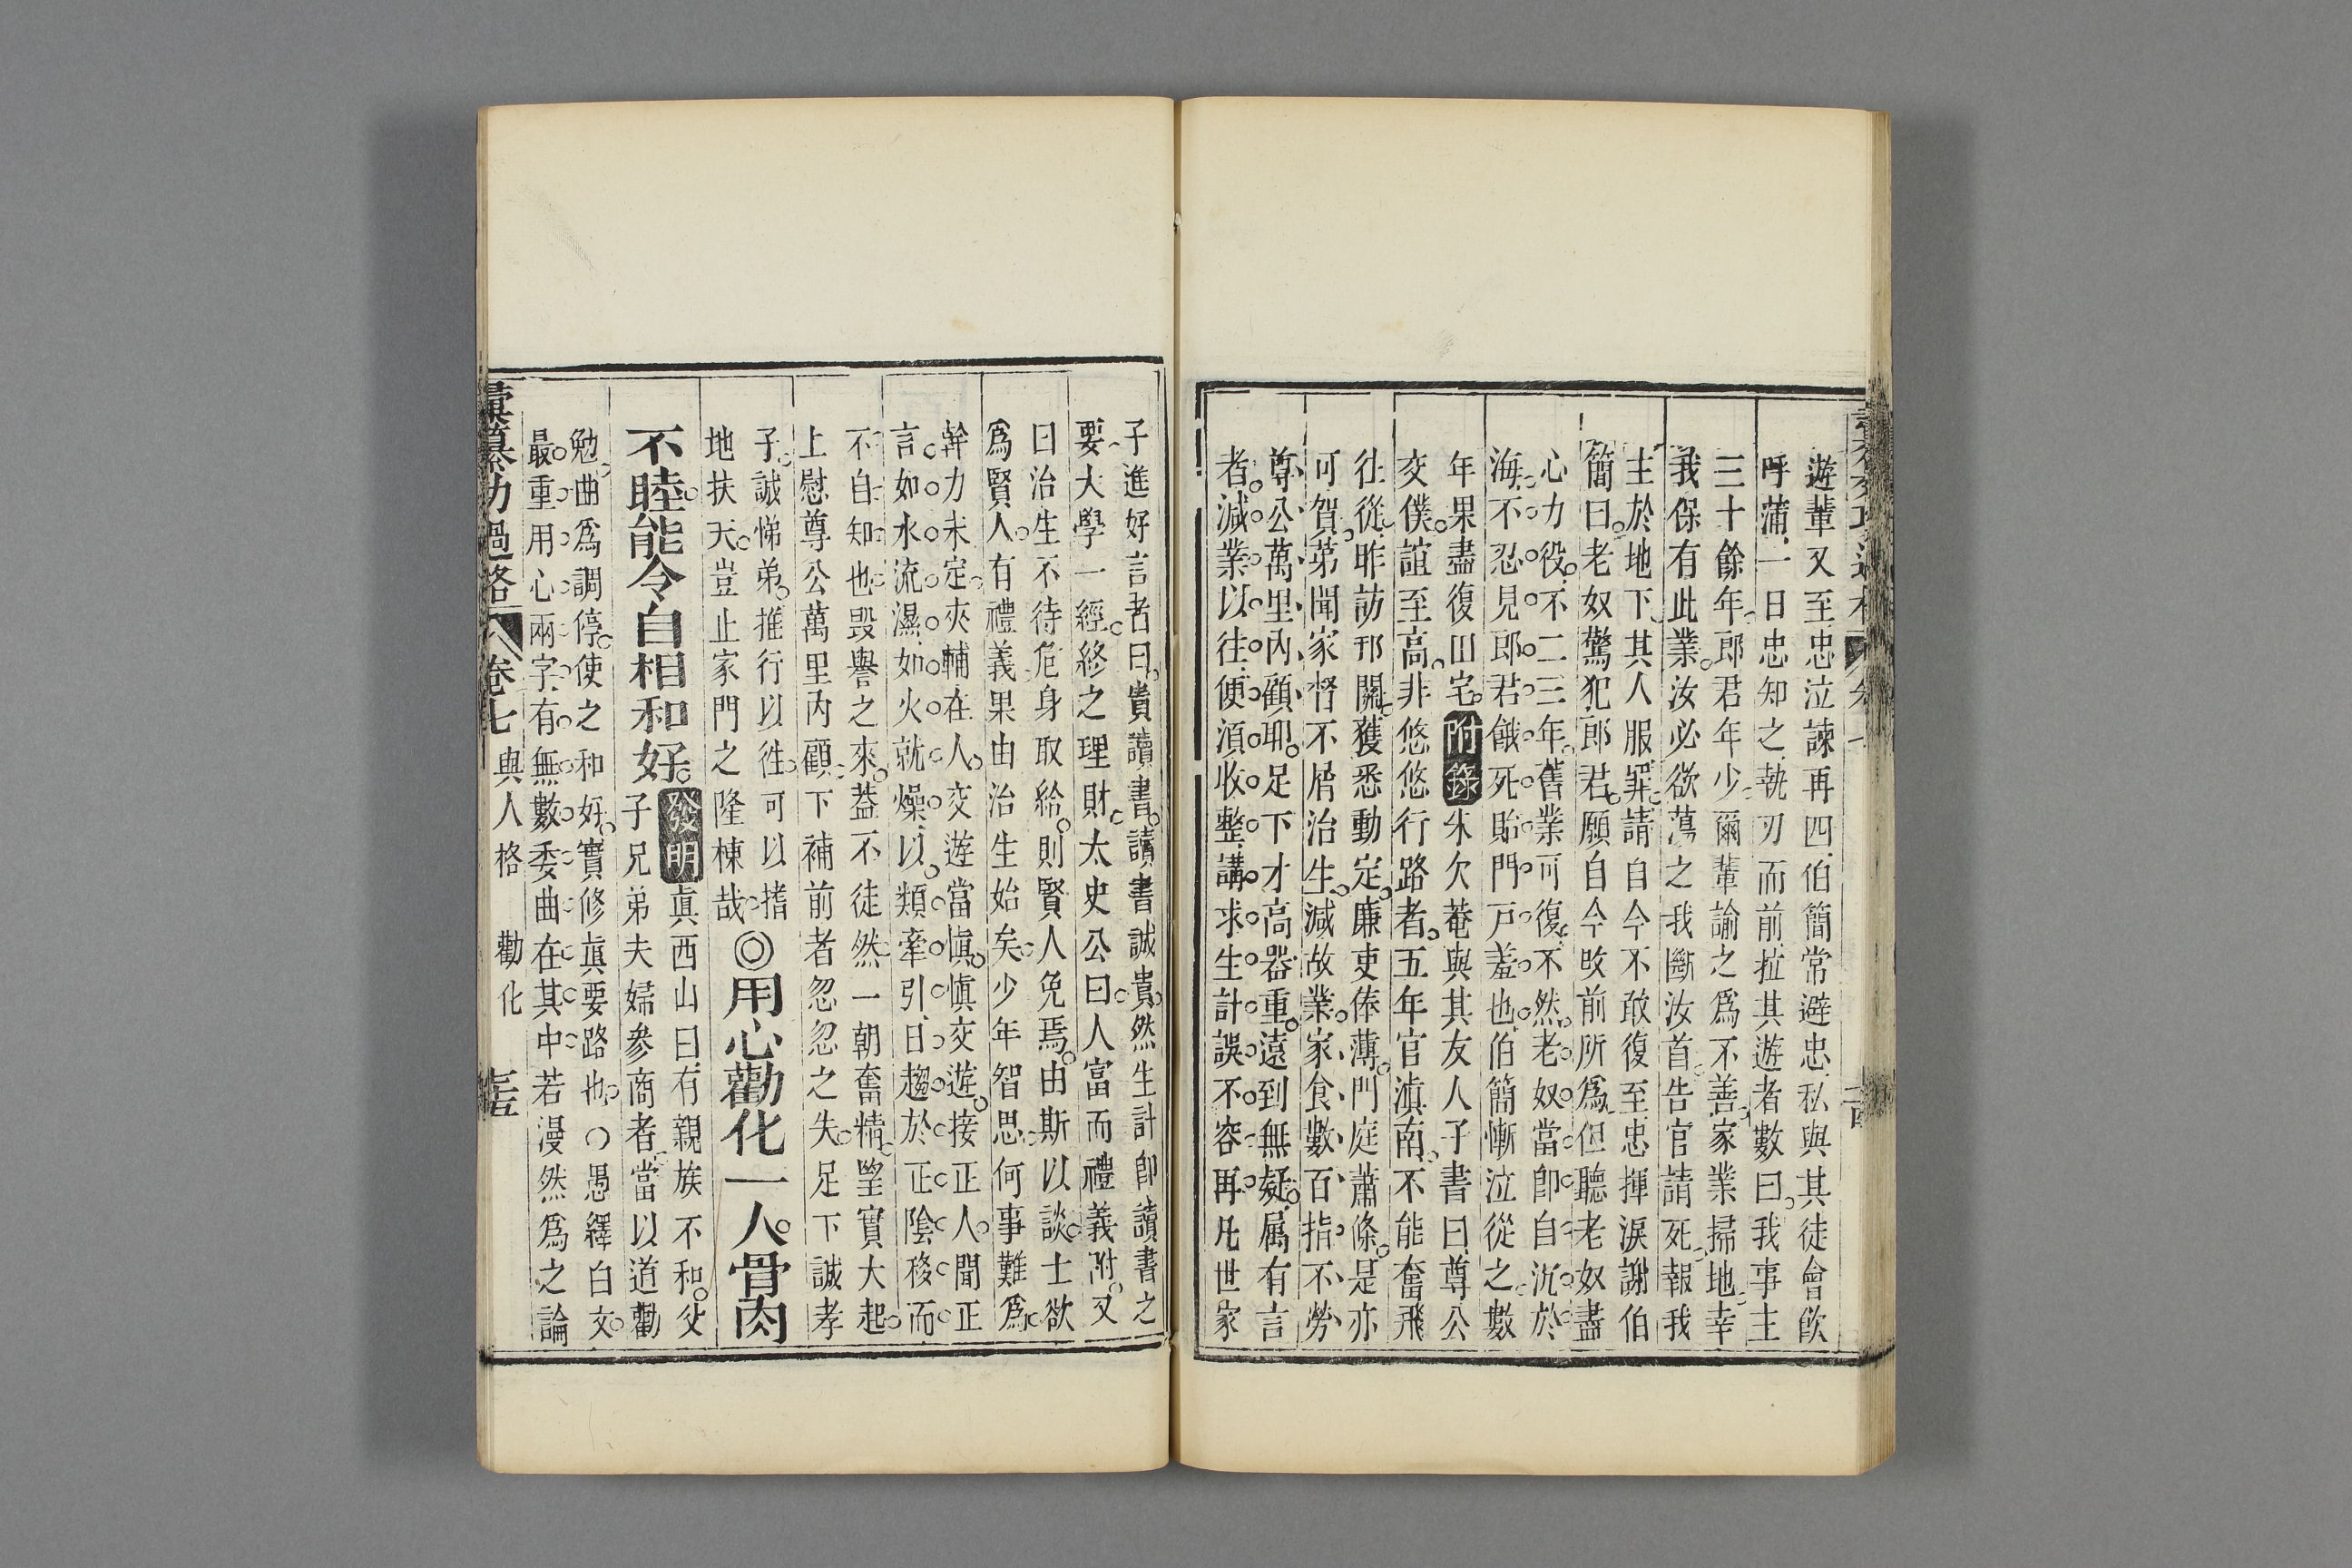 遊輩又至忠泣諫再四伯簡常避忠私與其徒會飲
呼蒲一日忠知之執刃而前拉其遊者數曰我事主
三十餘年郎君年少爾輩諭之爲不善家業掃地幸
我保有此業汝必欲蕩之我斷汝首告官請死報我
主於地下其人服罪請自今不敢復至忠揮淚謝伯
簡曰老奴驚犯郎君願自今改前所爲但聽老奴盡
心力役不二三年舊業可復不然老奴當卽自沉於
海不忍見郎君餓死貽門戸羞也伯簡慚泣從之數
年果盡復田宅附錄朱欠菴與其友人子書曰尊公
交僕誼至高非悠悠行路者五年官滇南不能奮飛
往從昨訪邗關獲悉動定廉吏俸薄門庭蕭條是亦
可賀第聞家督不屑治生減故業家食數百指不勞
尊公萬里內顧耶足下才高器重遠到無疑屬有言
者減業以往便湏收整講求生計誤不容再凡世家
子進好言者曰貴讀書讀書誠貴然生計卽讀書之
要大學一經終之理財太史公曰人富而禮義附又
曰治生不待危身取給則賢人免焉由斯以談士欲
爲賢人有禮義果由治生始矣少年智思何事難爲
幹力未定夾輔在人交遊當愼愼交遊接正人聞正
言如水流濕如火就燥以類牽引日趨於正陰移而
不自知也毀譽之來葢不徒然一朝奮精望實大起
上慰尊公萬里內顧下補前者忽忽之失足下誠孝
子誠悌弟推行以徃可以搘
地扶天豈止家門之隆棟哉
◎用心勸化一人骨肉
不睦能令自相和好發明眞西山曰有親族不和父
子兄弟夫婦參商者當以道勸
勉曲爲調停使之和好實修眞要路也○愚繹白文
最重用心兩字有無數委曲在其中若漫然爲之論
彙纂功過格 卷七 與人格 勸化